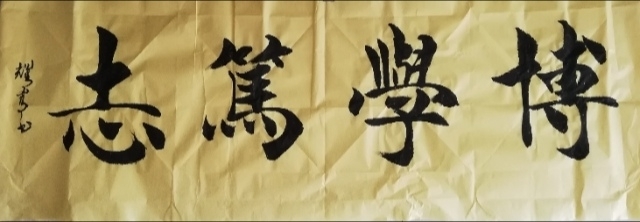 博學篤志